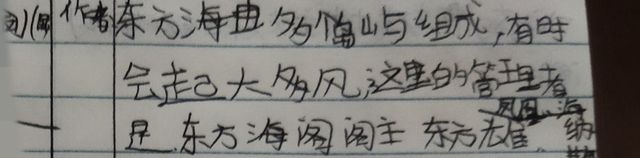 作者 东方海由多个岛屿组成,有时
会起大台风,这里的管理者
是 东方海阁阁主 东方
凤凰 海
纳